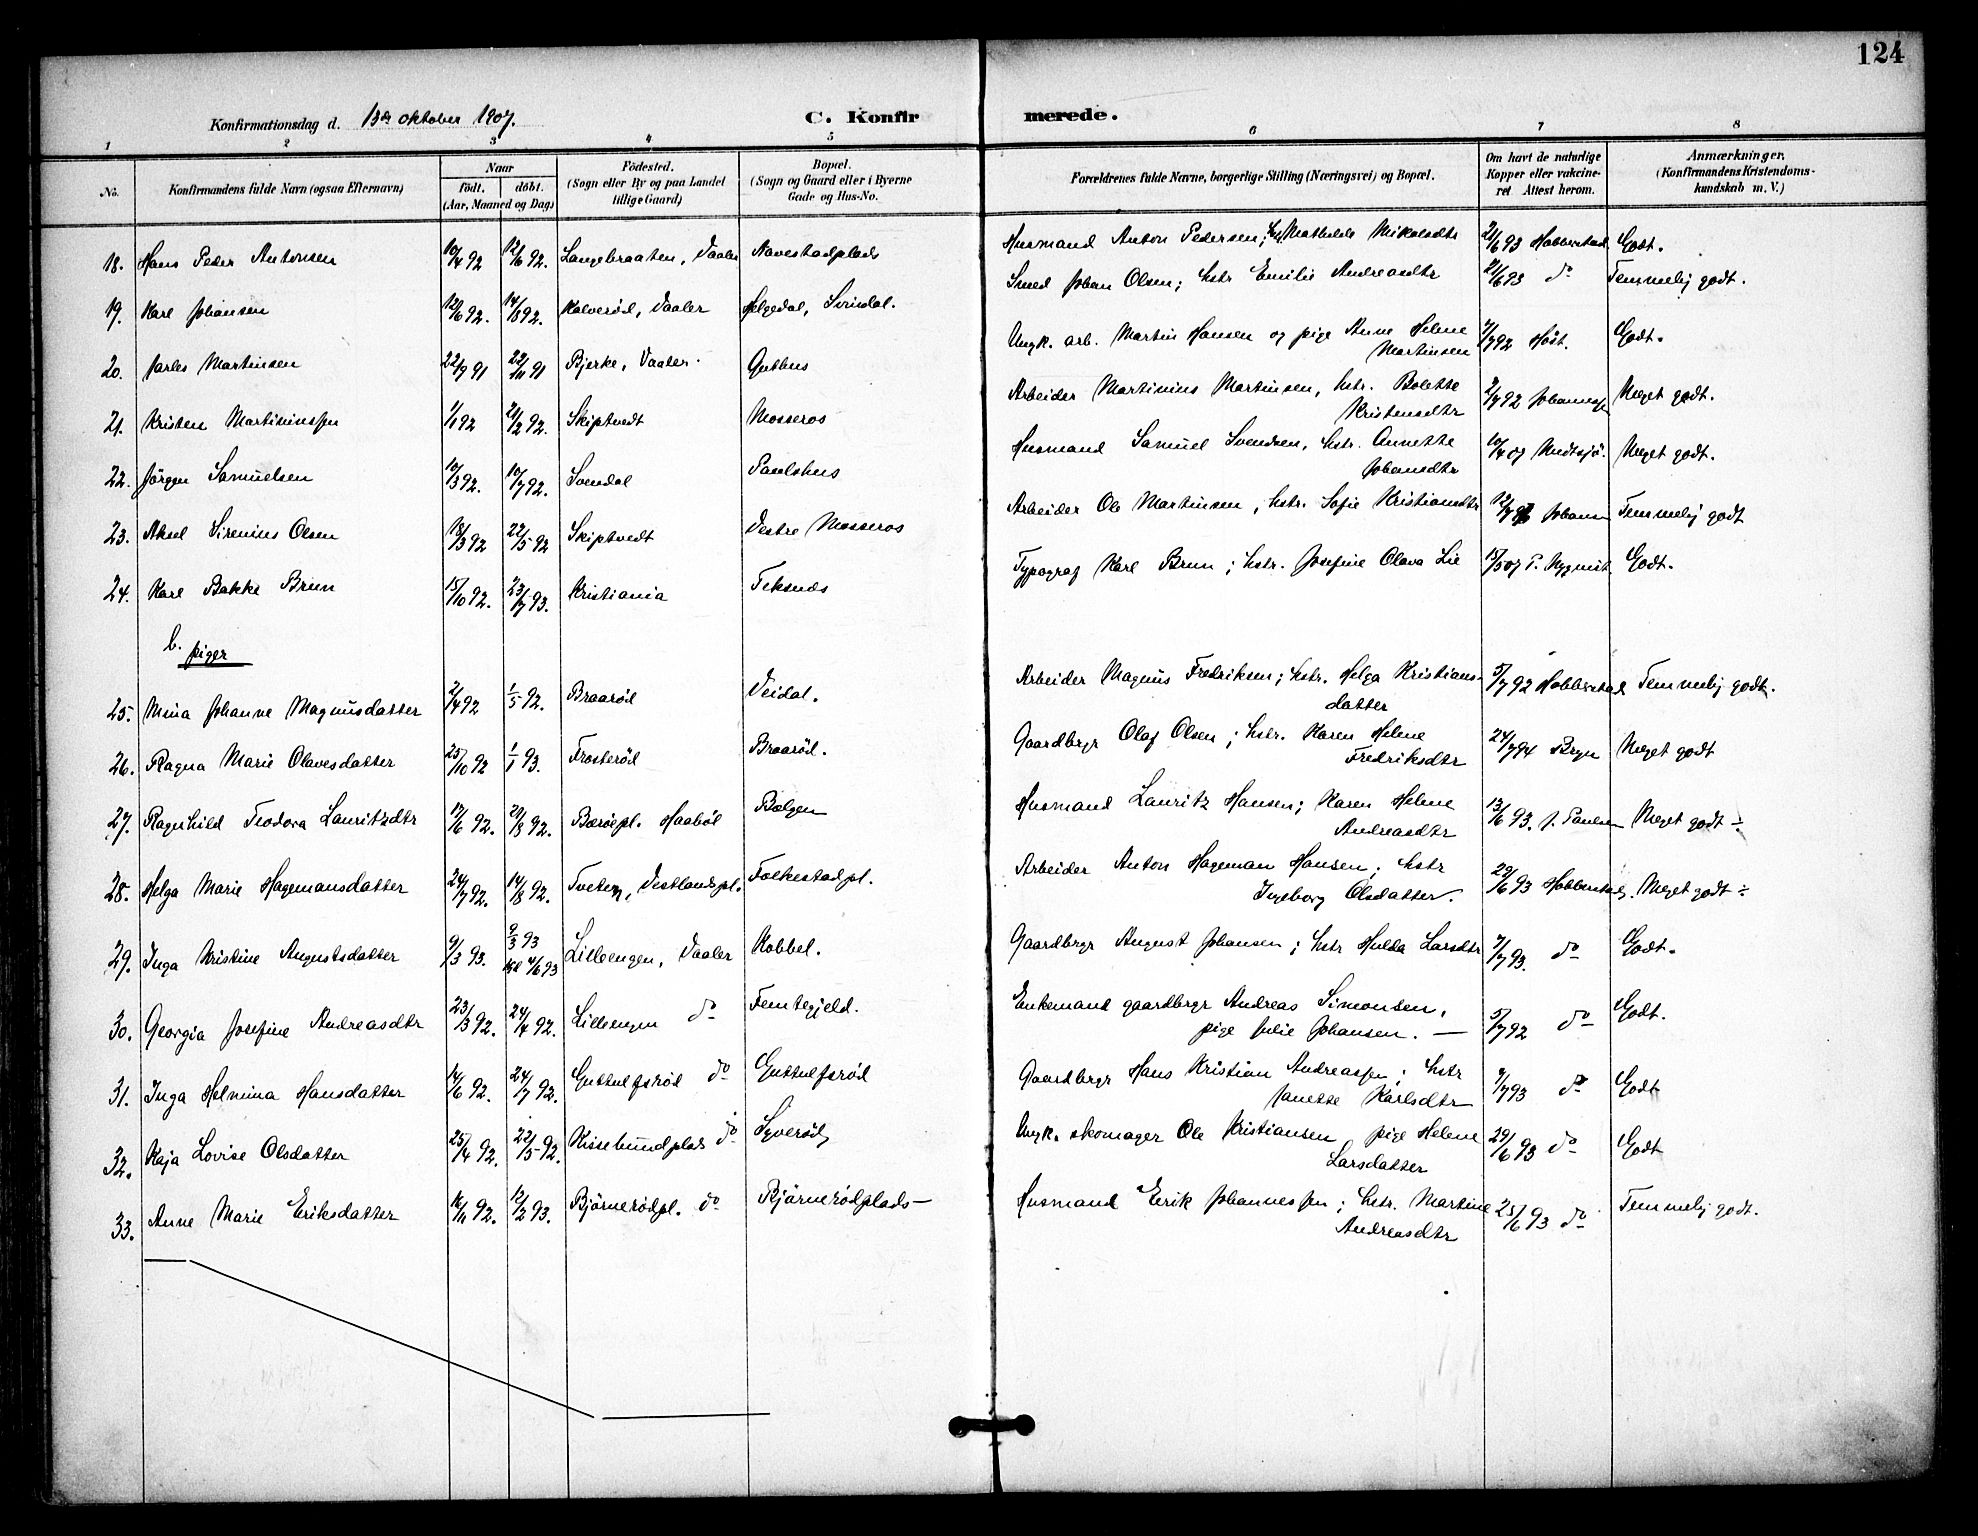 124
Konfirmationsdag d. 13de oktober 1907.
C. Konfirmerede.
1 2 3 4 5 6 7 8
No. Konfirmandens fulde Navn (ogsaa Efternavn) Naar født. døbt. (Aar, Maaned og Dag) Fødested. (Sogn eller By og paa Landet tillige Gaard) Bopæl. (Sogn og Gaard eller i Byerne Gade og Hus-No. Forældrenes fulde Navne, borgerlige Stilling (Næringsvei) og Bopæl. Om havt de naturlige Kopper eller vakcineret Attest herom. Anmærkninger. (Konfirmandens Kristendomskundskab m. V.)
18. Hans Peder Antonsen 10/4 92 12/6 92. Langebraaten, Vaaler Navestadplads Husmand Anton Pedersen; Mathilde Nikolsdtr 2/6 93 Hobberstad Godt.
19. Karl Johansen 12/6 92. 14/8 92. Kalverød, Vaaler Helgedal, Svindal. Smed Johan Olsen; hstr Emilie Andreasdtr 21/6 93 do Temmelig godt.
20. Jarles Martinsen 22/9 91 22/11 91 Bjerke, Vaaler. Guthus Ungk. arb. Martin Hansen og pige Anne Helene Martinsen 7/7 92 Høst. Godt.
21. Kristen Martiniussen 1/1 92 21/2 92. Skiptvedt Mosseros Arbeider Martinius Martinsen, hstr. Bolette Kristensdtr 2/7 92 Meget godt.
22. Jørgen Samuelsen 10/3 92. 10/7 92. Svendal Paulshus Husmand Samuel Svendsen, hstr. Annette Johansdtr 10/4 07 Meget godt.
23. Aksel Sirenius Olsen 18/3 92 22/5 92 Skiptvedt Vestre Mosseros Arbeider Ole Martinsen, hstr. Sofie Kristiansdtr Temmelig godt
24. Karl Bakke Brun 15/10 92. 23/7 93. Kristiania Teksnæs Typograf Karl Brun; hstr. Josefine Olava Lie 15/5 07 P. Nyquist. Godt.
b. piger
25. Mina Johanne Magnusdatter 2/4 92 1/5 92. Braarød Veidal. Arbeider Magnus Fredriksen; hstr. Helga Kristiansdatter 5/7 92 Hobberstad Temmelig godt.
26. Ragna Marie Olavesdatter 25/10 92 1/1 93. Frosterød Braarød. Gaardbrgr Olaf Olsen; hstr. Karen Helene Fredriksdtr 24/7 94 Bryn Meget godt
27. Ragnhild Teodora Lauritzdtr 17/6 92. 20/8 92. Bærøepl. Haabøl Bølgen Husmand Lauritz Hansen; Karen Helene Andreasdtr 13/6 93. J. Paulsen Meget godt ÷
28. Helga Marie Hagemansdatter 24/7 92. 14/8 92. Tveten, Vestlandspl. Folkestadpl. Arbeider Anton Hageman Hansen; hstr Ingeborg Olsdatter. 29/6 93 Hobberstad. Meget godt ÷
29. Inga Kristine Augustsdatter 9/3 93. 9/3 93 4/6 93 Lilleengen, Vaaler Kobbel. Gaardbrgr August Johansen; hstr Hulda Larsdtr 7/7 93. do Godt.
30. Georgia Josefine Andreasdtr 23/3 92. 24/4 92. Lilleengen do Femtegjeld. Enkemand gaardbrgr Andreas Simonsen, pige Julie Johansen. — 5/7 92 do Godt.
31. Inga Helmina Hansdatter 14/6 92. 24/7 92. Guttulfsrød do Guttulfsrød Gaardbrgr Hans Kristian Andreassen; hstr Janette Karlsdtr 7/7 93 do Godt
32. Kaja Lovise Olsdatter 25/4 92. 22/5 92. Kissebundplads do Syverød Ungk. skomager Ole Kristiansen pige Helene Larsdatter 29/6 93 do Godt
33. Anne Marie Eriksdatter 16/11 92. 12/2 93. Bjørnerødpl. do Bjørnerødplads — Husmand Erik Johannessen; hstr. Martine Andreasdtr 25/6 93 do Temmelig godt.